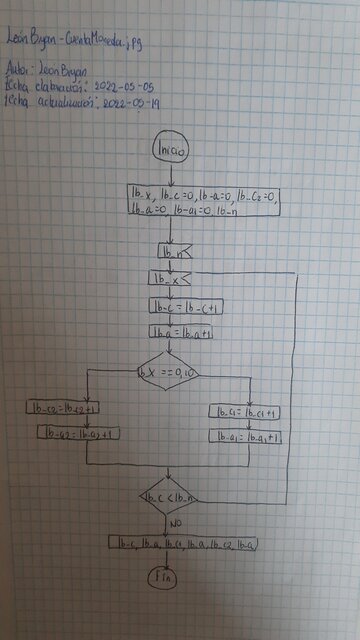 LeonBryan-CuentaMoneda.jpg
Autor: LeonBryan
Fecha elaboración: 2022-05-05
Fecha actualización: 2022-05-19
Inicio
lb_x, lb_c=0, lb_a=0, lb_c2=0,
lb_a=0, lb_a1=0, lb_n
lb_n
lb_x
lb_c = lb_c+1
lb_a = lb_a+1
lb_x == 0,10
lb_c2=lb_c2+1
lb_c1=lb_c1+1
lb_a2=lb_a2+1
lb_a1=lb_a1+1
lb_c < lb_n
NO
lb_c, lb_a, lb_c1, lb_a, lb_c2, lb_a
Fin